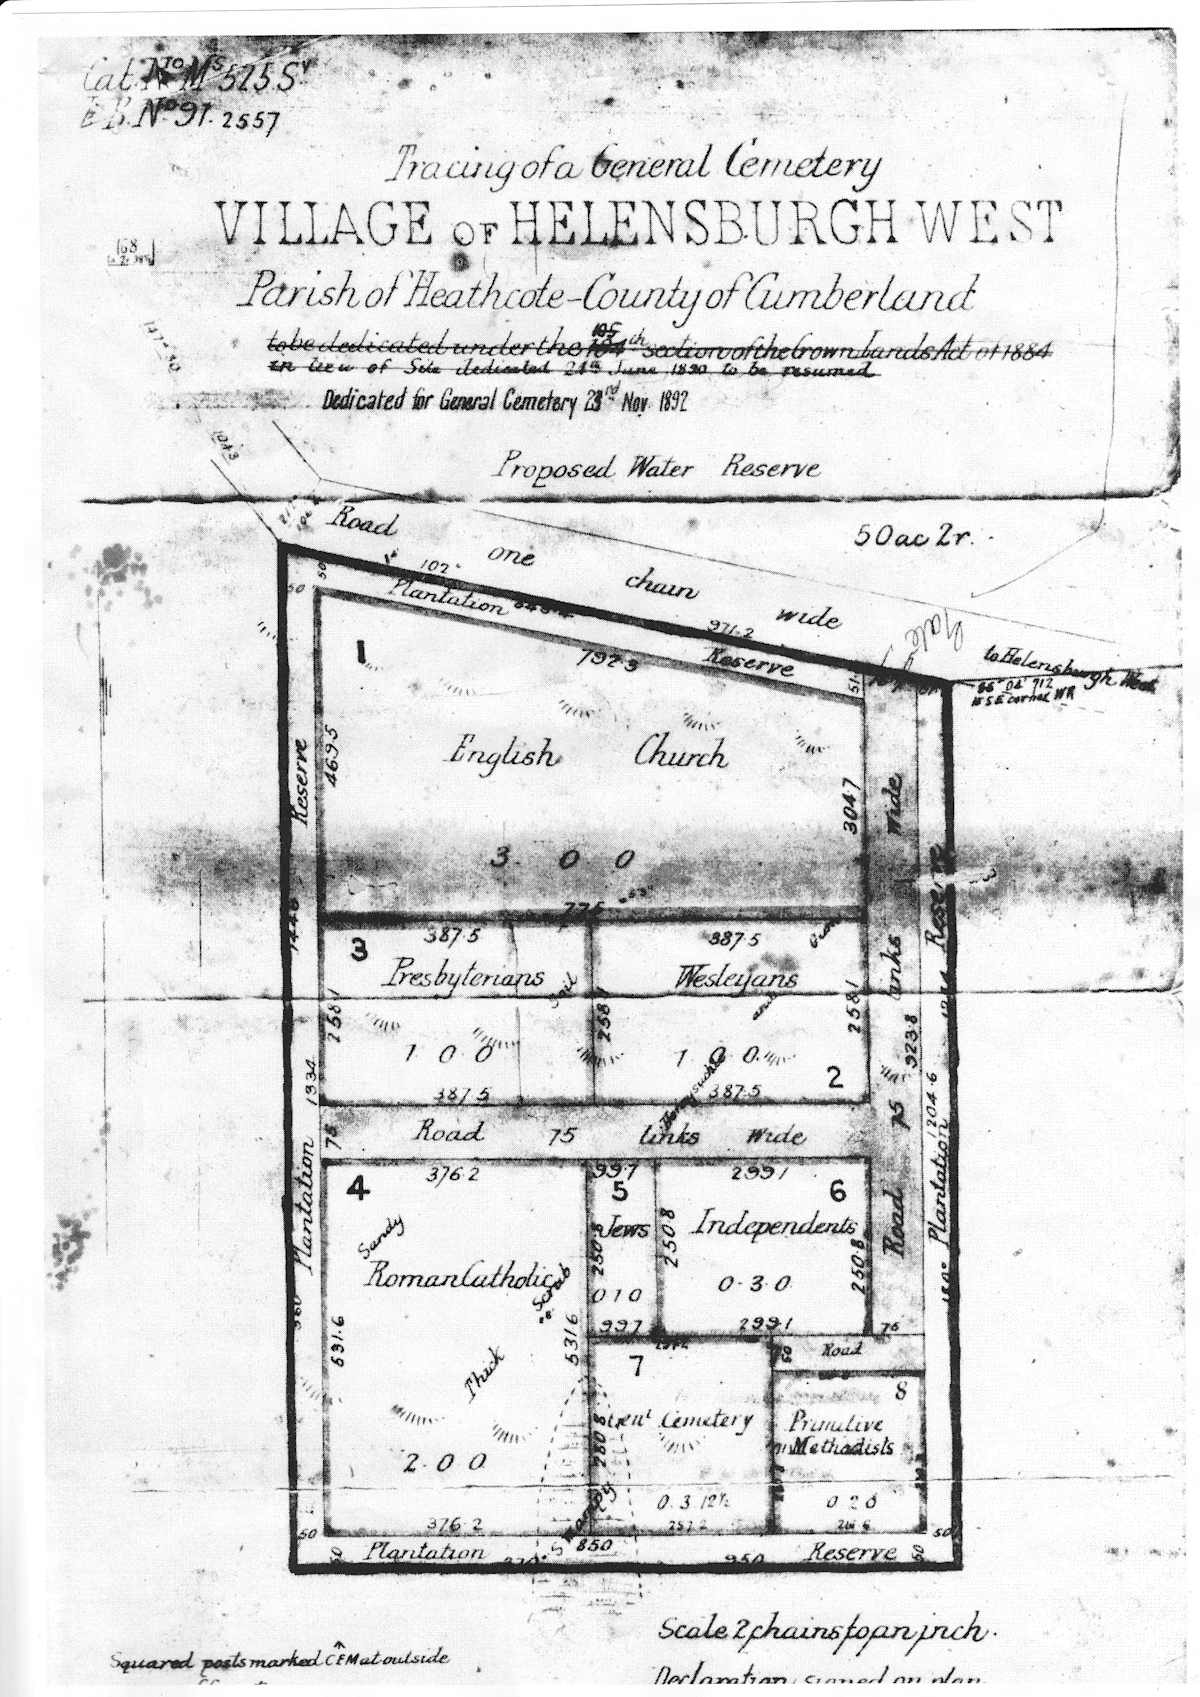 Cat. No Ms 525 Sy
E B. No 91. 2557
Tracing of a General Cemetery
VILLAGE OF HELENSBURGH WEST
Parish of Heathcote - County of Cumberland
to be dedicated under the 105 104th section of the Crown Lands Act of 1884
in lieu of Site dedicated 21st June 1890 to be resumed
Dedicated for General Cemetery 23rd Nov. 1892
Proposed Water Reserve
50ac 2r.
Road one chain wide
102°
971.2
Plantation Reserve
Gate
to Helensburgh West
50
50
1
792.3
English Church
3 0 0
469.5
3047
775
Reserve
Plantation
1334
3
387.5
Presbyterians
1 0 0
387.5
2581
2581
Soil
387.5
Wesleyans
1 0 0
2
387.5
2581
and
Honeysuckle
Road 75 links wide
75
Road 75 links Wide
923.8
Plantation Reserve
1204.6
4
376.2
Sandy
Roman Catholic
Thick
Scrub
2 0 0
531.6
531.6
376.2
99.7
5
Jews
0 1 0
99.7
250.8
250.8
299.1
6
Independents
0 3 0
299.1
250.8
75
Road
7
Cemetery
280.8
0 3 12½
257.2
8
Primitive
Methodists
0 2 0
Swampy
50
850
50
50
50
Plantation Reserve
950
Scale 2 chains to an inch.
Squared posts marked CEM at outside
Declaration signed on plan